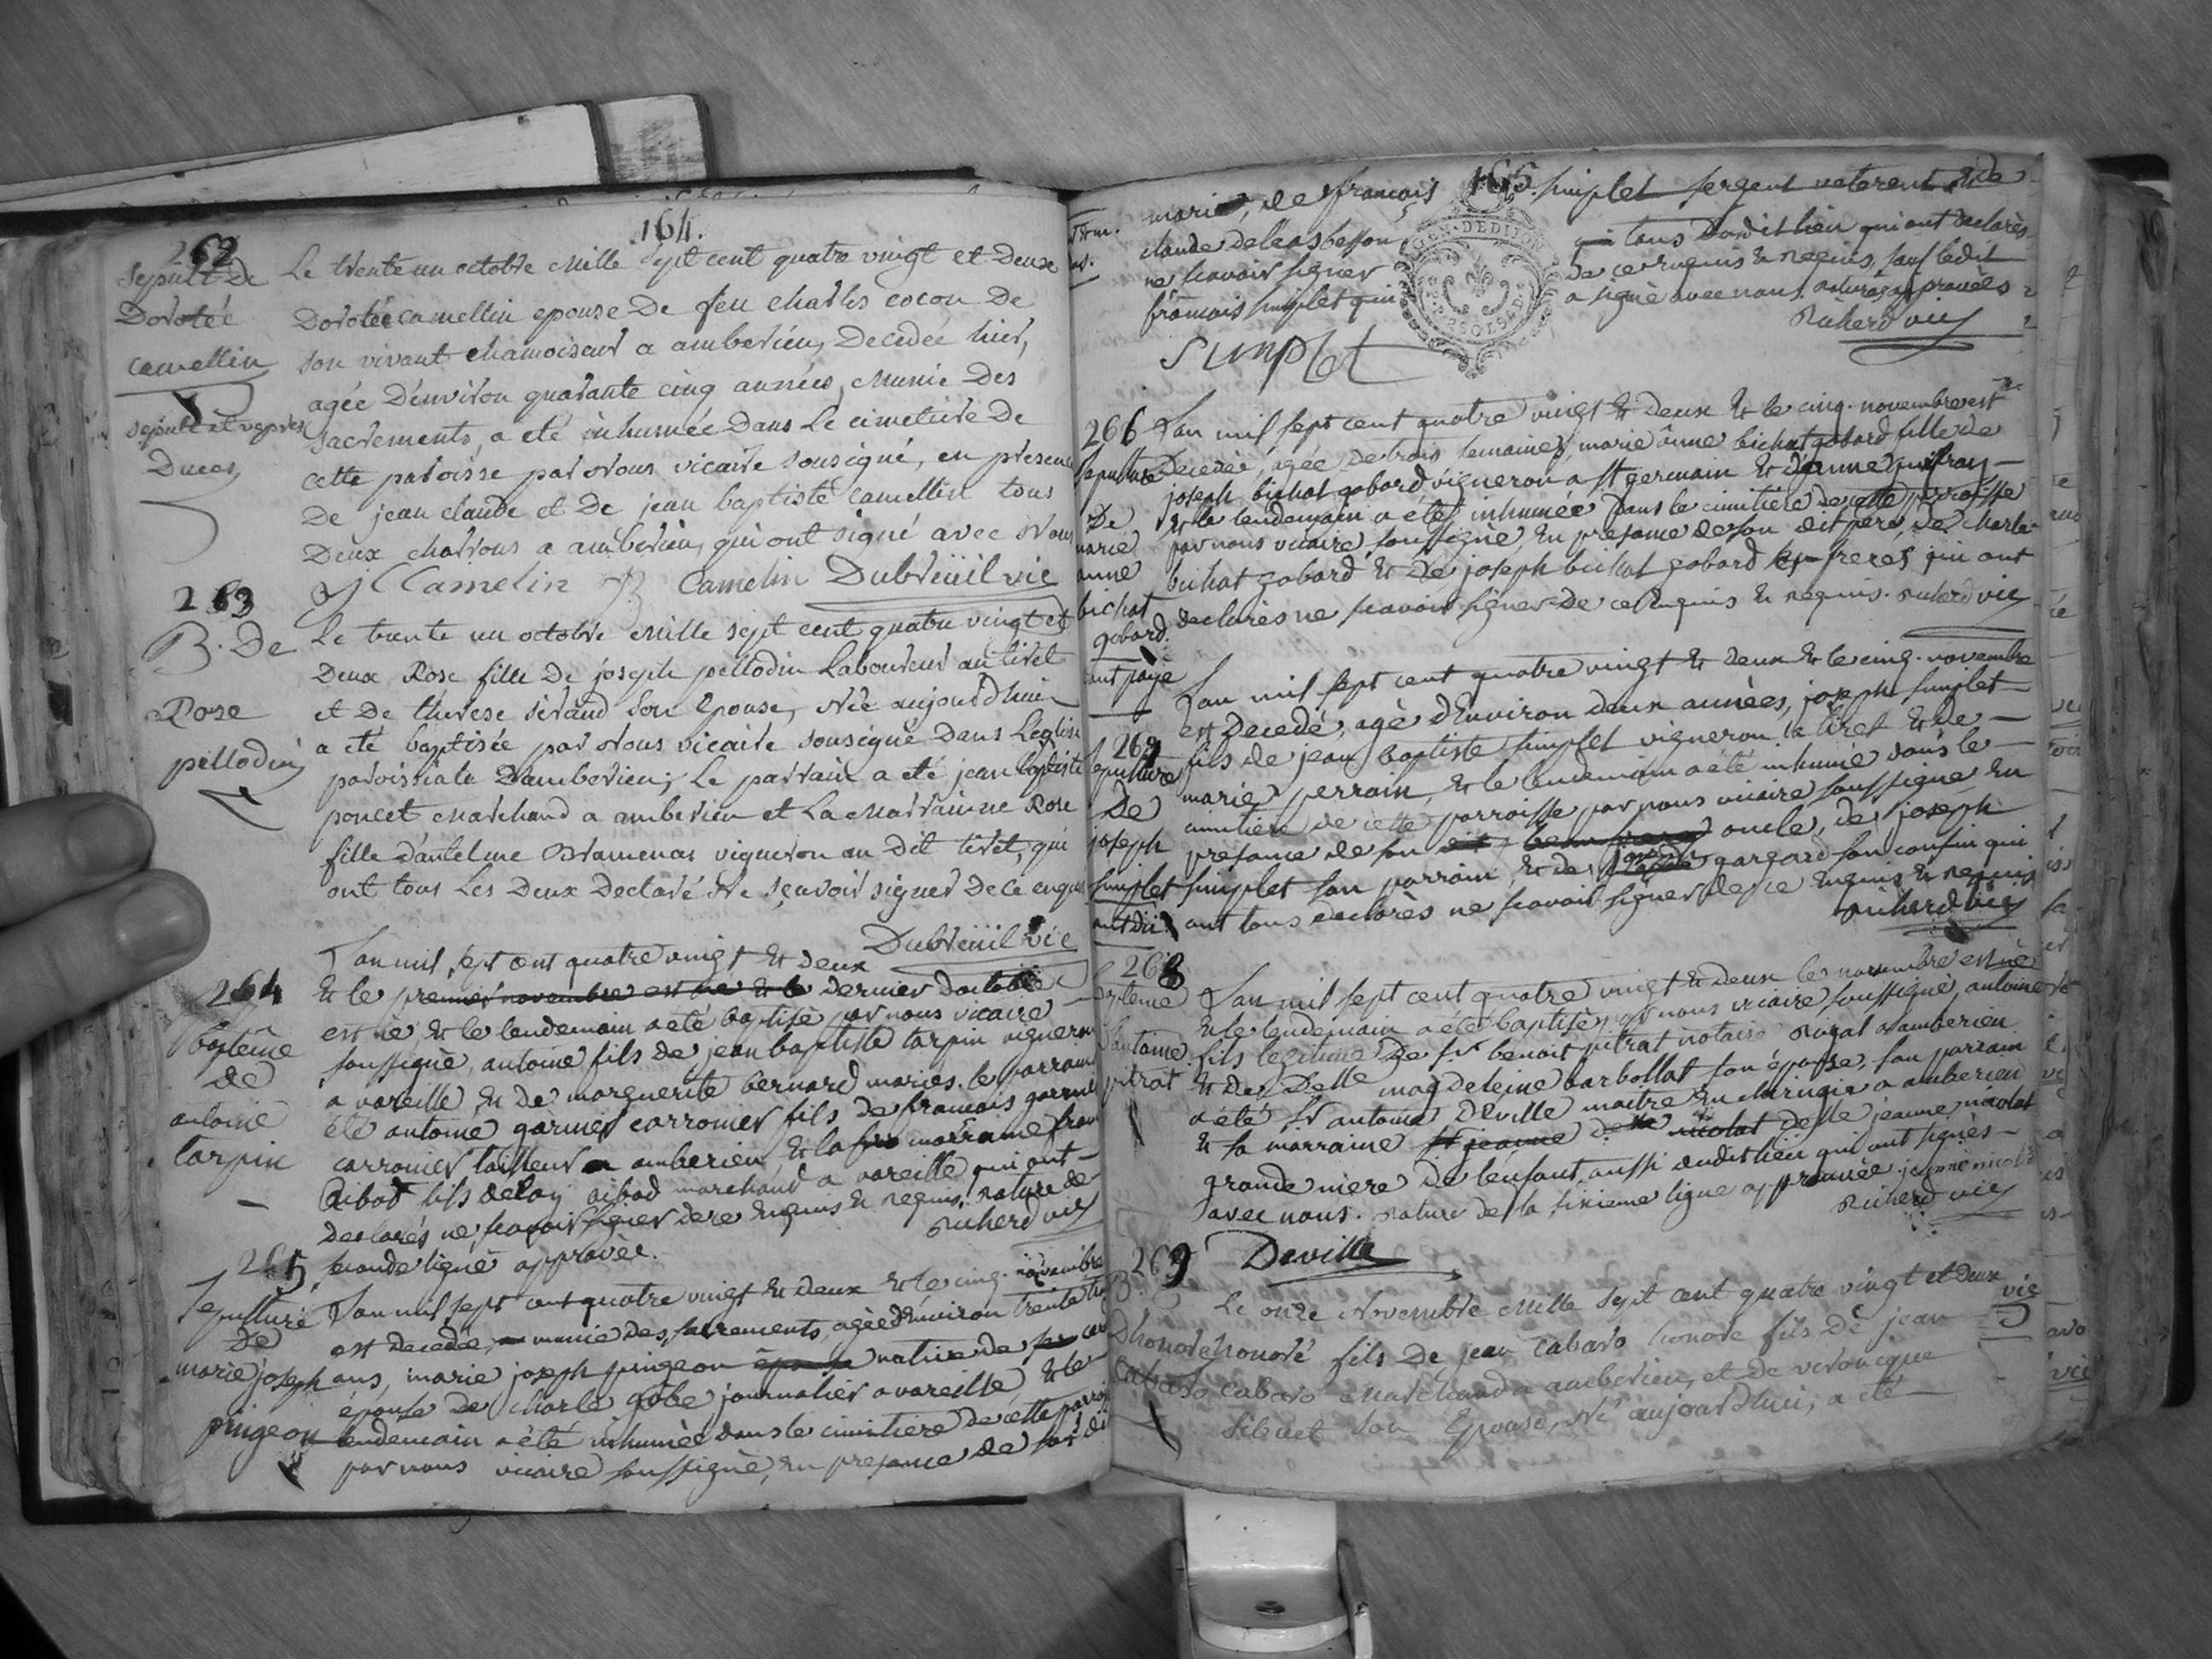 164.
262
Sepult De
Dorotée
camellin
sepult et vepres
Dues
Le trente un octobre Mille Sept cent quatre vingt et Deux
Dorotée camellin epouse De feu charles cocon De
son vivant chamoiseur a amberieu, Decedée hier,
agée D'environ quarante cinq années, Munie Des
sacrements, a eté inhumée Dans Le cimetiere De
cette paroisse par Nous vicaire sousigné, en presence
De jean claude et De jean baptiste camellin tous
Deux charrons a amberieu, qui ont signé avec Nous
J C Camelin J B Camelin Dubreüil vic
263
B. De
Rose
pellodin
Le trente un octobre Mille sept cent quatre vingt et
Deux Rose fille De joseph pellodin Laboureur au tiret
et De therese sirand son Epouse, Née aujourd'hui
a eté baptisée par Nous vicaire sousigné Dans L'eglise
paroissiale D'amberieu; Le parrain a eté jean baptiste
poncet Marchand a amberieu et La Marrainne Rose
fille d'antelme Bramenas vigneron au Dit tiret, qui
ont tous Les Deux Declaré Ne sçavoir signer De ce enquis
Dubreüil vic
264
baptême
de
antoine
tarpin
L'an mil sept cent quatre vingt et deux
et le premier novembre est né et le dernier d'octobre
est né, et le lendemain a été baptisé par nous vicaire
soussigné, antoine fils de jean baptiste tarpin vigneron
a vareille et de marguerite bernard mariés. le parrain
été antoine garnier carronier fils de francois garnier
carronier tailleur a amberieu, et la marraine
aibod fils deloy aibod marchand a vareille qui ont
declarés ne scavoir signer de ce enquis et requis. rature de
seconde ligne approuvée. Richerd vic
265
Sepulture
De
marie joseph
pingeon
L'an mil sept cent quatre vingt et deux et le cinq novembre
est decedée, munie des sacrements, agée d'environ trente
ans, marie joseph pingeon épouse native de
épouse de charle gobe journalier a vareille, et le
lendemain a été inhumée dans le cimitiere de cette
par nous vicaire soussigné, en presance de son
165.
marié, de francois simplet sergent
claude delasbesson tous dudit lieu qui ont declarés
ne scavoir signer De ce enquis et requis, sauf ledit
francois simplet qui a signé avec nous. ratures approuvées
Richerd vic
Simplet
266
Sepulture
De
marie
anne
bichat
gobard.
ont payé
L'an mil sept cent quatre vingt et deux et le cinq novembre est
Decedée, agée de trois semaines, marie ânne bichat gobard fille de
joseph bichat gobard vigneron a st germain et d'anne
et le lendemain a été inhumée dans le cimitière de cette parroisse
par nous vicaire soussigné, en presance de son dit père, de charle
bichat gobard et de joseph bichat gobard freres qui ont
declarés ne scavoir signer de ce enquis et requis. Richerd vic
267
Sepulture
De
joseph
simplet
ont dû
L'an mil sept cent quatre vingt et deux et le cinq novembre
est Decedé, agé d'environ deux années, joseph simplet
fils de jean baptiste simplet vigneron a tiret et de
marie perrain, et le lendemain a été inhumé dans le
cimitière de cette parroisse par nous vicaire soussigné en
presance de son oncle, de joseph
simplet son parrain, et de joseph garçard son cousin qui
ont tous declarés ne scavoir signer de ce enquis et requis
Richerd vic
268
Baptême
d'antoine
pitrat
L'an mil sept cent quatre vingt et deux le novembre est né
et le lendemain a été baptisé par nous vicaire soussigné antoine
fils legitime De sr benoit pitrat notaire royal a amberieu
et de Delle magdeleine barbollat son épouse, son parrain
a été sr antoine Deville maitre en chirurgie a amberieu
et sa marraine st jeanne delle nicolat delle jeanne nicolat
grande mere de l'enfant, aussi dudit lieu qui ont signés
avec nous. rature de la sixieme ligne approuvée. jeanne nicolat
Richerd vic
Deville
269
B.
D'honoré
Cabaro
Le onze Novembre Mille Sept cent quatre vingt et deux
honoré fils De jean Cabaro honore fils De jean
cabaro Marchand a amberieu, et De veronique
Sibuet Son Epouse, Né aujourd'hui, a eté